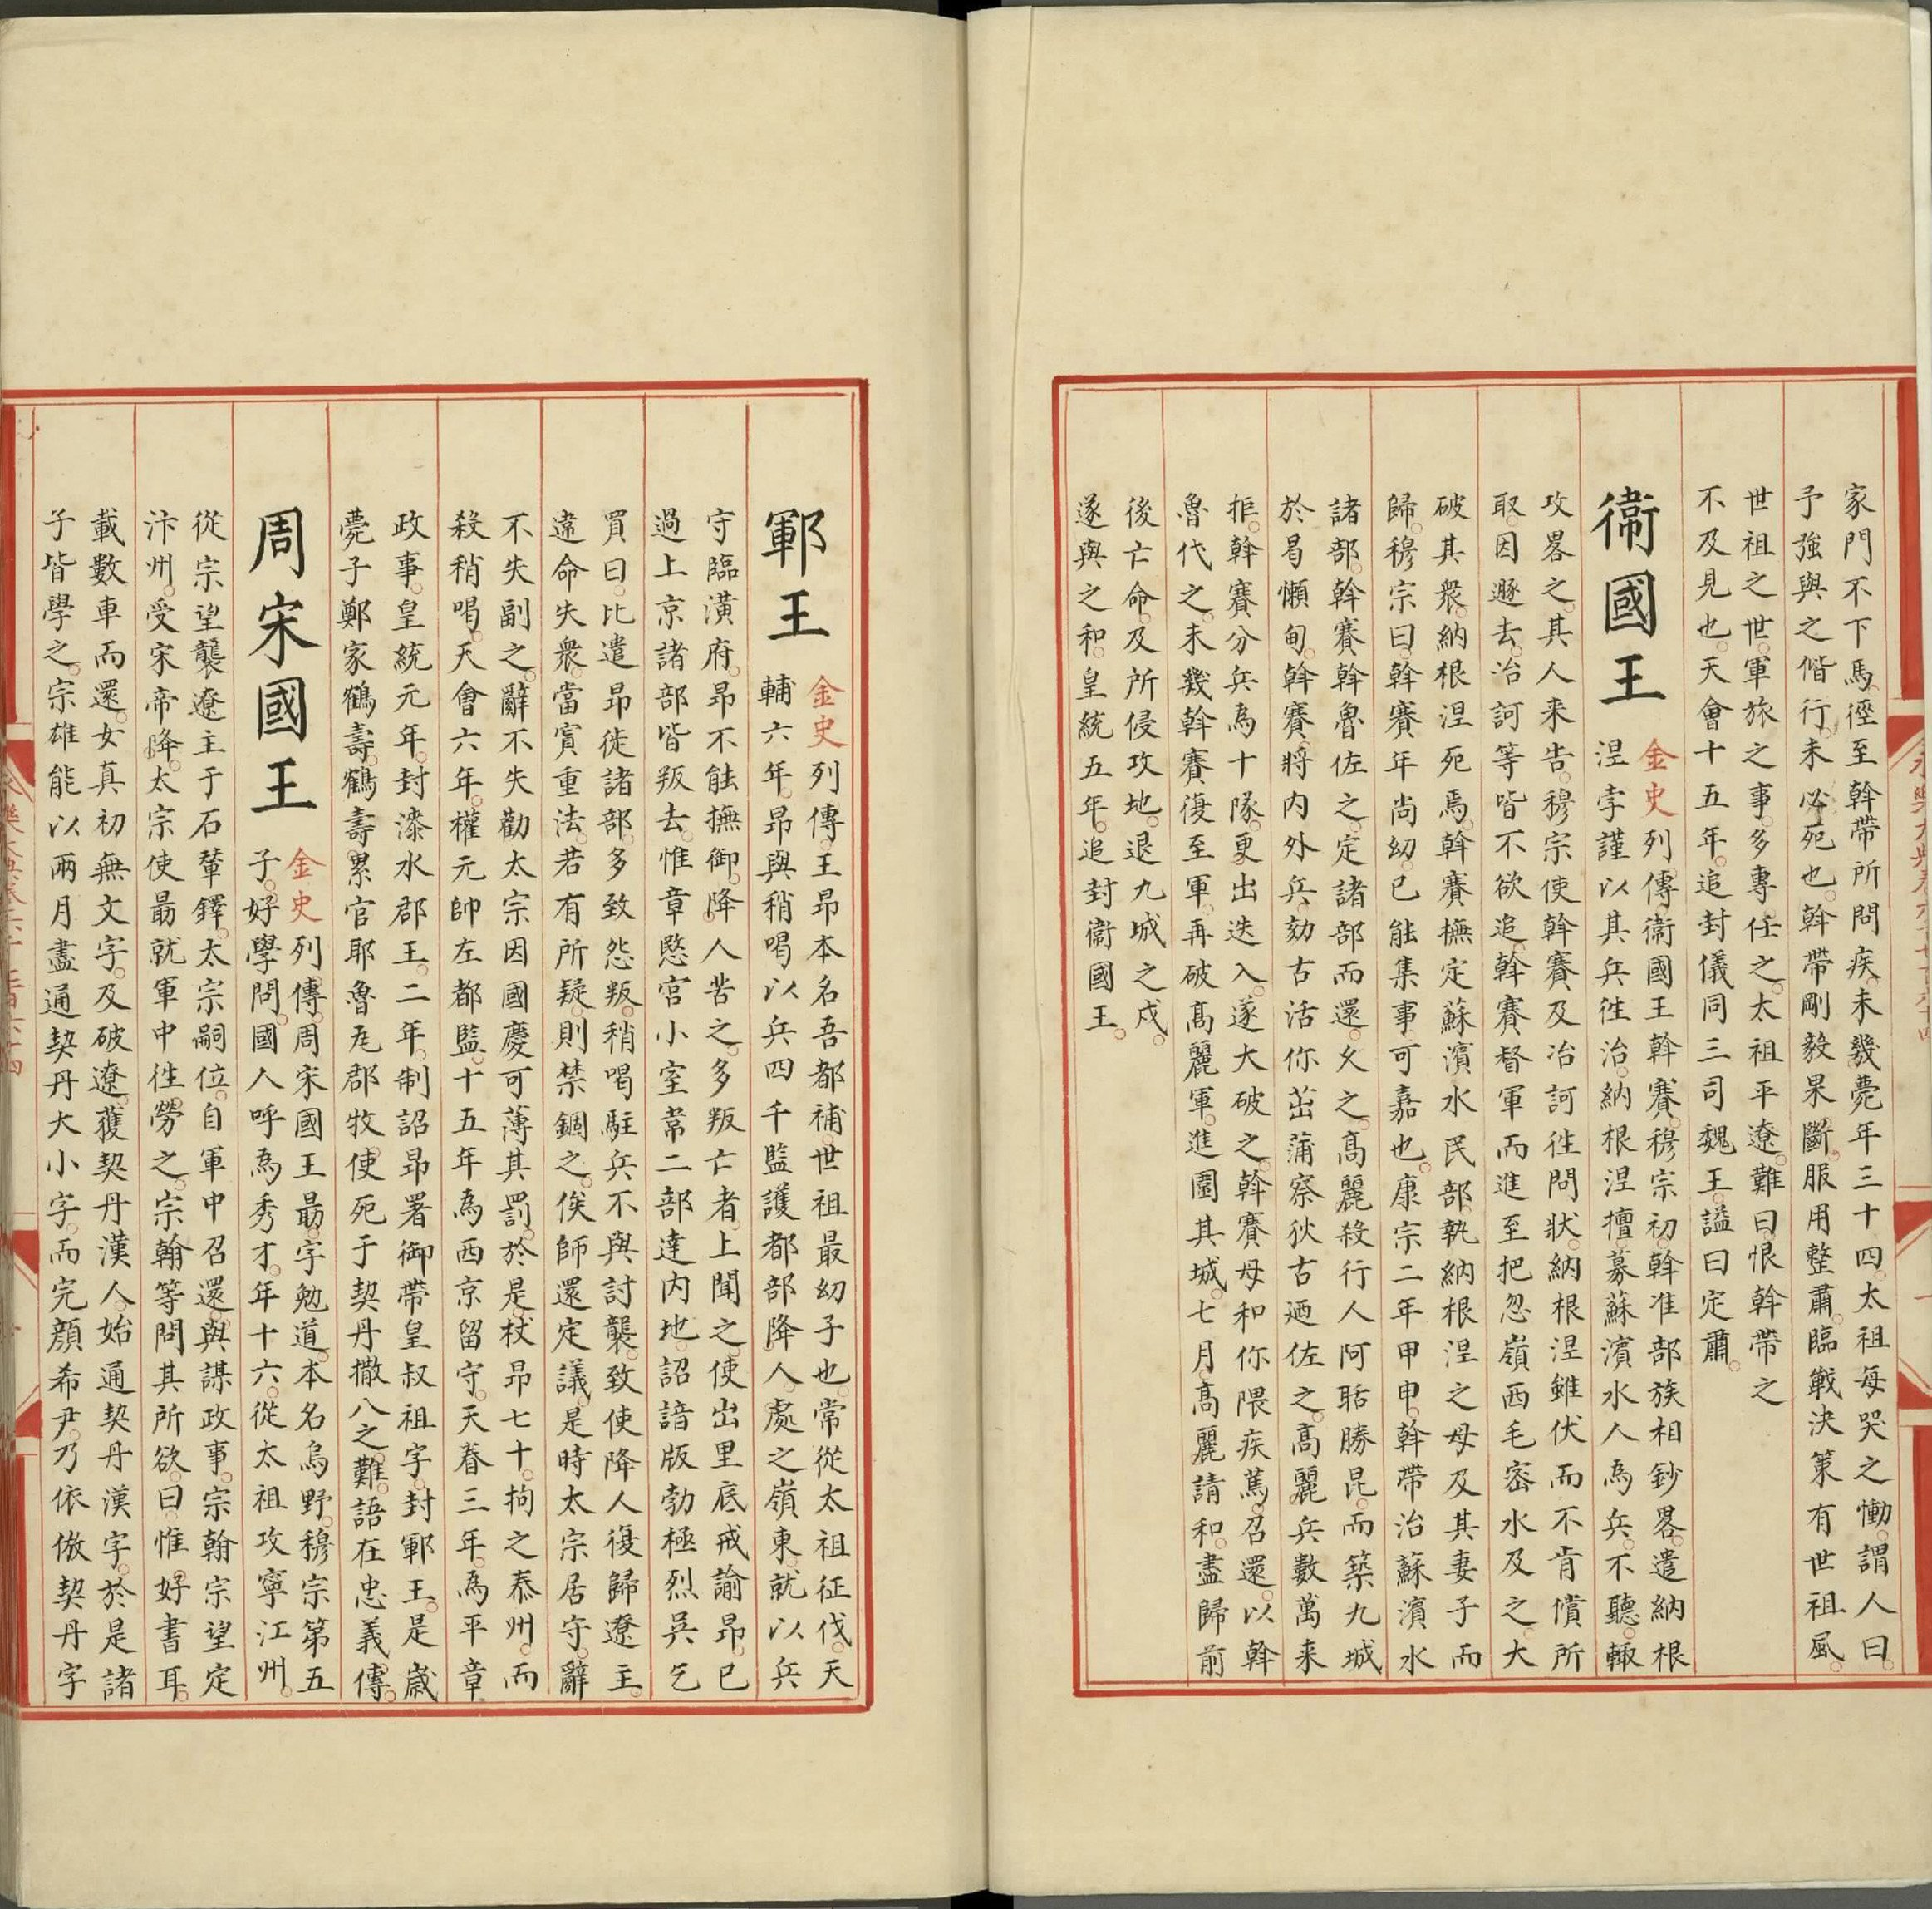 家門不下馬徑至斡帶所問疾未幾薨年三十四太祖每哭之慟謂人曰
予強與之偕行未必死也斡帶剛毅果斷服用整肅臨戰決策有世祖風
世祖之世軍旅之事多專任之太祖平遼難曰恨斡帶之
不及見也天會十五年追封儀同三司魏王謚曰定肅
衞國王
金史列傳衞國王斡賽穆宗初斡准部族相鈔畧遣納根
涅孛謹以其兵徃治納根涅擅募蘇濱水人為兵不聽輙
攻畧之其人来告穆宗使斡賽及冶訶徃問狀納根涅雖伏而不肯償所
取因遯去冶訶等皆不欲追斡賽督軍而進至把忽嶺西毛宻水及之大
破其衆納根涅死焉斡賽撫定蘇濱水民部執納根涅之母及其妻子而
歸穆宗曰斡賽年尚幼已能集事可嘉也康宗二年甲申斡帶治蘇濱水
諸部斡賽斡魯佐之定諸部而還久之髙麗殺行人阿聒勝昆而築九城
於曷懶甸斡賽將内外兵劾古活你茁蒲察狄古廼佐之髙麗兵數萬来
拒斡賽分兵為十隊更出迭入遂大破之斡賽母和你隈疾篤召還以斡
魯代之未幾斡賽復至軍再破髙麗軍進圍其城七月髙麗請和盡歸前
後亡命及所侵攻地退九城之戍
遂與之和皇統五年追封衞國王
鄆王
金史列傳王昂本名吾都補世祖最幼子也常從太祖征伐天
輔六年昂與稍喝以兵四千監護都部降人處之嶺東就以兵
守臨潢府昂不能撫御降人苦之多叛亡者上聞之使出里底戒諭昂已
過上京諸部皆叛去惟章愍宫小室常二部達内地詔諳版勃極烈吳乞
買曰比遣昂徙諸部多致怨叛稍喝駐兵不與討襲致使降人復歸遼主
違命失衆當寘重法若有所疑則禁錮之俟師還定議是時太宗居守辭
不失副之辭不失勸太宗因國慶可薄其罰於是杖昂七十拘之泰州而
殺稍喝天會六年權元帥左都監十五年為西京留守天眷三年為平章
政事皇統元年封漆水郡王二年制詔昂署御帶皇叔祖字封鄆王是歲
薨子鄭家鶴壽鶴壽累官耶魯瓦郡牧使死于契丹撒八之難語在忠義傳
周宋國王
金史列傳周宋國王勗字勉道本名烏野穆宗第五
子好學問國人呼為秀才年十六從太祖攻寧江州
從宗望襲遼主于石輦鐸太宗嗣位自軍中召還與謀政事宗翰宗望定
汴州受宋帝降太宗使勗就軍中徃勞之宗翰等問其所欲曰惟好書耳
載數車而還女真初無文字及破遼獲契丹漢人始通契丹漢字於是諸
子皆學之宗雄能以兩月盡通契丹大小字而完顏希尹乃依倣契丹字